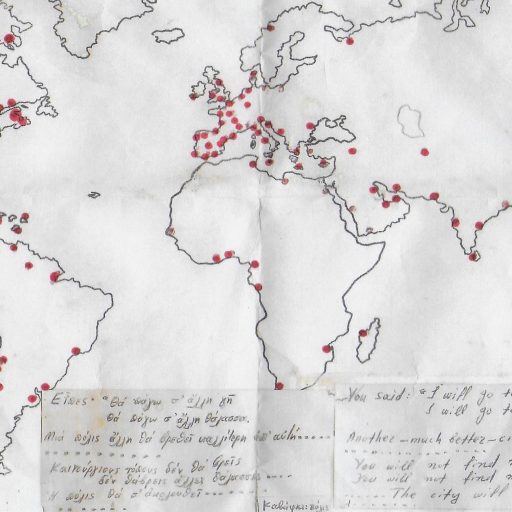 Εἶπες· "Θά πάγω σ' ἄλλη γῆ
θά πάγω σ' ἄλλη θάλασσα.
Μιά πόλις ἄλλη θά βρεθεῖ καλλίτερη ἀπ' αὐτή......
Καινούργιους τόπους δέν θά βρεῖς
δέν θάβρεις ἄλλες θάλασσες....
Η πόλις θά σ' ἀκολουθεῖ......
Καβάφης: πόλις
You said: "I will go to
I will go to
Another - much better - ci
You will not find n
You will not find n
..... The city will